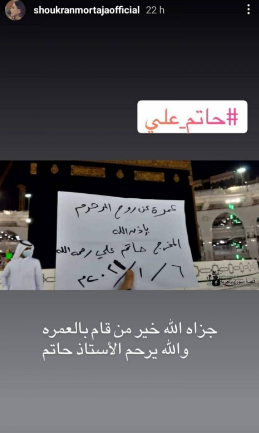 shoukranmortajaofficial 22 h
#حاتم_علي
عمرة عن روح المرحوم
بإذن الله
المخرج حاتم علي رحمه الله
٢٠٢١/١/٦م
جزاه الله خير من قام بالعمره
والله يرحم الأستاذ حاتم